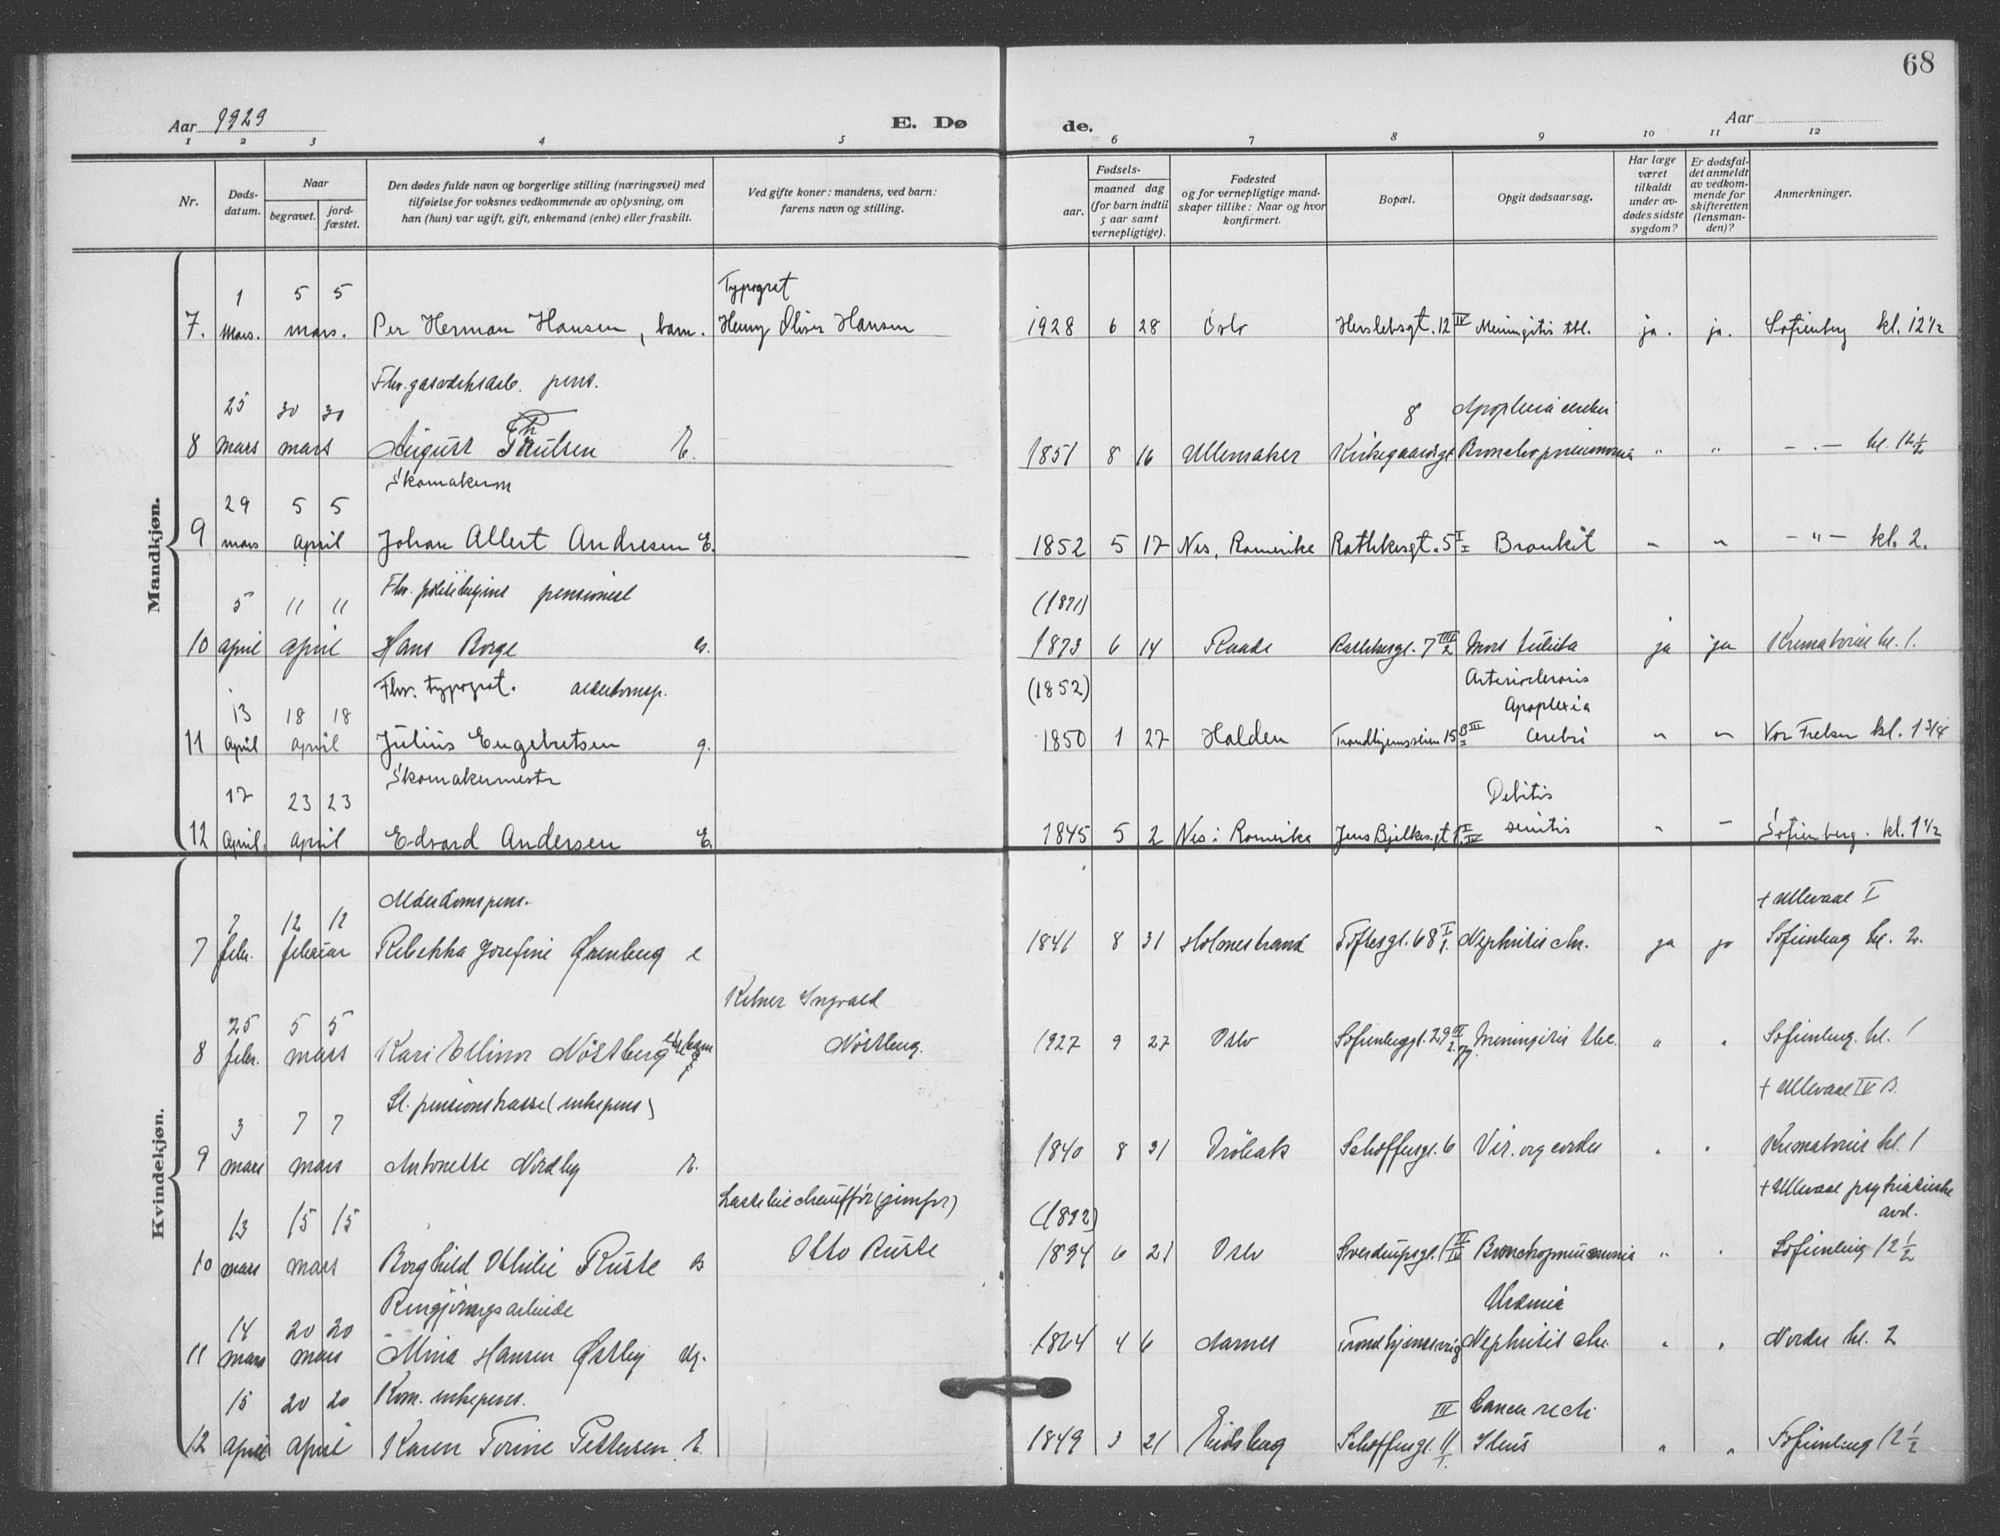 68
Aar 1929 E. Dø de. Aar
1 2 3 4 5 6 7 8 9 10 11 12
Nr. Dødsdatum. Naar begravet. jordfæstet. Den dødes fulde navn og borgerlige stilling (næringsvei) med tilføielse for voksnes vedkommende av oplysning, om han (hun) var ugift, gift, enkemand (enke) eller fraskilt. Ved gifte koner: mandens, ved barn: farens navn og stilling. Fødsels- aar. maaned dag (for barn indtil 5 aar samt vernepligtige). Fødested og for vernepligtige mandskaper tillike: Naar og hvor konfirmert. Bopæl. Opgit dødsaarsag. Har læge været tilkaldt under avdødes sidste sygdom? Er dødsfaldet anmeldt av vedkommende for skifteretten (lensmanden)? Anmerkninger.
Mandkjøn.
Typograf
1 5 5
7. Mars. mars. Per Herman Hansen, barn. Henry Oliver Hansen 1928 6 28 Oslo Herslebsgt. 12 IV Meningitis tbl. ja. ja. Sofienberg kl. 12 1/2
Fhv. gasverksarb. pens.
25 30 30 8 Apoplexia cerebri
8 mars mars August Paulsen E. 1851 8 16 Ullensaker Kirkegaardsgt Bronchopneumonia " " - " - kl. 12 1/2
Skomakerm
29 5 5
9 mars april Johan Albert Andresen E. 1852 5 17 Nes, Romerike Rathkesgt. 5 I Bronkit " " - " - kl. 2.
Fhv. politibetjent pensionist
5 11 11 (1871)
10 april april Hans Borge 1873 6 14 Raade Rathkesgt. 7 III 2 Mors subita ja ja Krematoriet kl. 1.
Fhv. typograf. alderdomsp. (1852) Arteriosclerosis
13 18 18 Apoplexia
11 april april Julius Engebretsen g. 1850 1 27 Halden Trondhjemsveien 15 B III cerebri " " Vor Frelser kl. 1 3/4
Skomakermestr
17 23 23 Debilitas
12 April. april Edvard Andersen E. 1845 5 2 Nes i Romerike Jens Bjelkesgt senilis " " Sofienberg. kl. 1 1/2
Kvindekjøn.
Alderdomspens. + Ullevaal I
7 12 12
7 febr. februar Rebekka Josefine Ørenberg e 1841 8 31 Holmestrand Toftesgt. 68 I 1. Nephritis chr. ja ja Sofienberg kl. 2.
Kelner Ingvald
25 5 5
8 febr. mars Kari Ellinor Nöstberg barn Nöstberg. 1927 9 27 Oslo Sofienberggt. 29 Meningitis tbc. " " Sofienberg. kl. 1
St. pensionskasse (enkepens) + Ullevaal IV B.
3 7 7
9 mars mars Antonette Nordby E. 1840 8 31 Dröbak Schøffersgt. 6 Vit. org cordis " " Krematoriet kl. 1
Lastebilchauffør (jernfor) + Ullevaal psykiatriske avd.
13 15 15 (1892)
10 mars mars Borghild Othilie Ruste Otto Ruste 1894 6 21 Oslo Sverdrupsgt. Bronchopneumonia " " Sofienberg 12 1/2
Rengjøringsarbeide Uræmia
14 20 20
11 mars mars Mina Hansen Østby Ug. 1864 4 6 Aarnes Trondhjemsveien Nephritis chr. " " Nordre kl. 2
Kom. enkepens.
15 20 20 III Cancer recti
12 april april Karen Torine Pettersen E. 1849 3 21 Eidsberg Schøffersgt. 11 I. Ileus " " Sofienberg 12 1/2